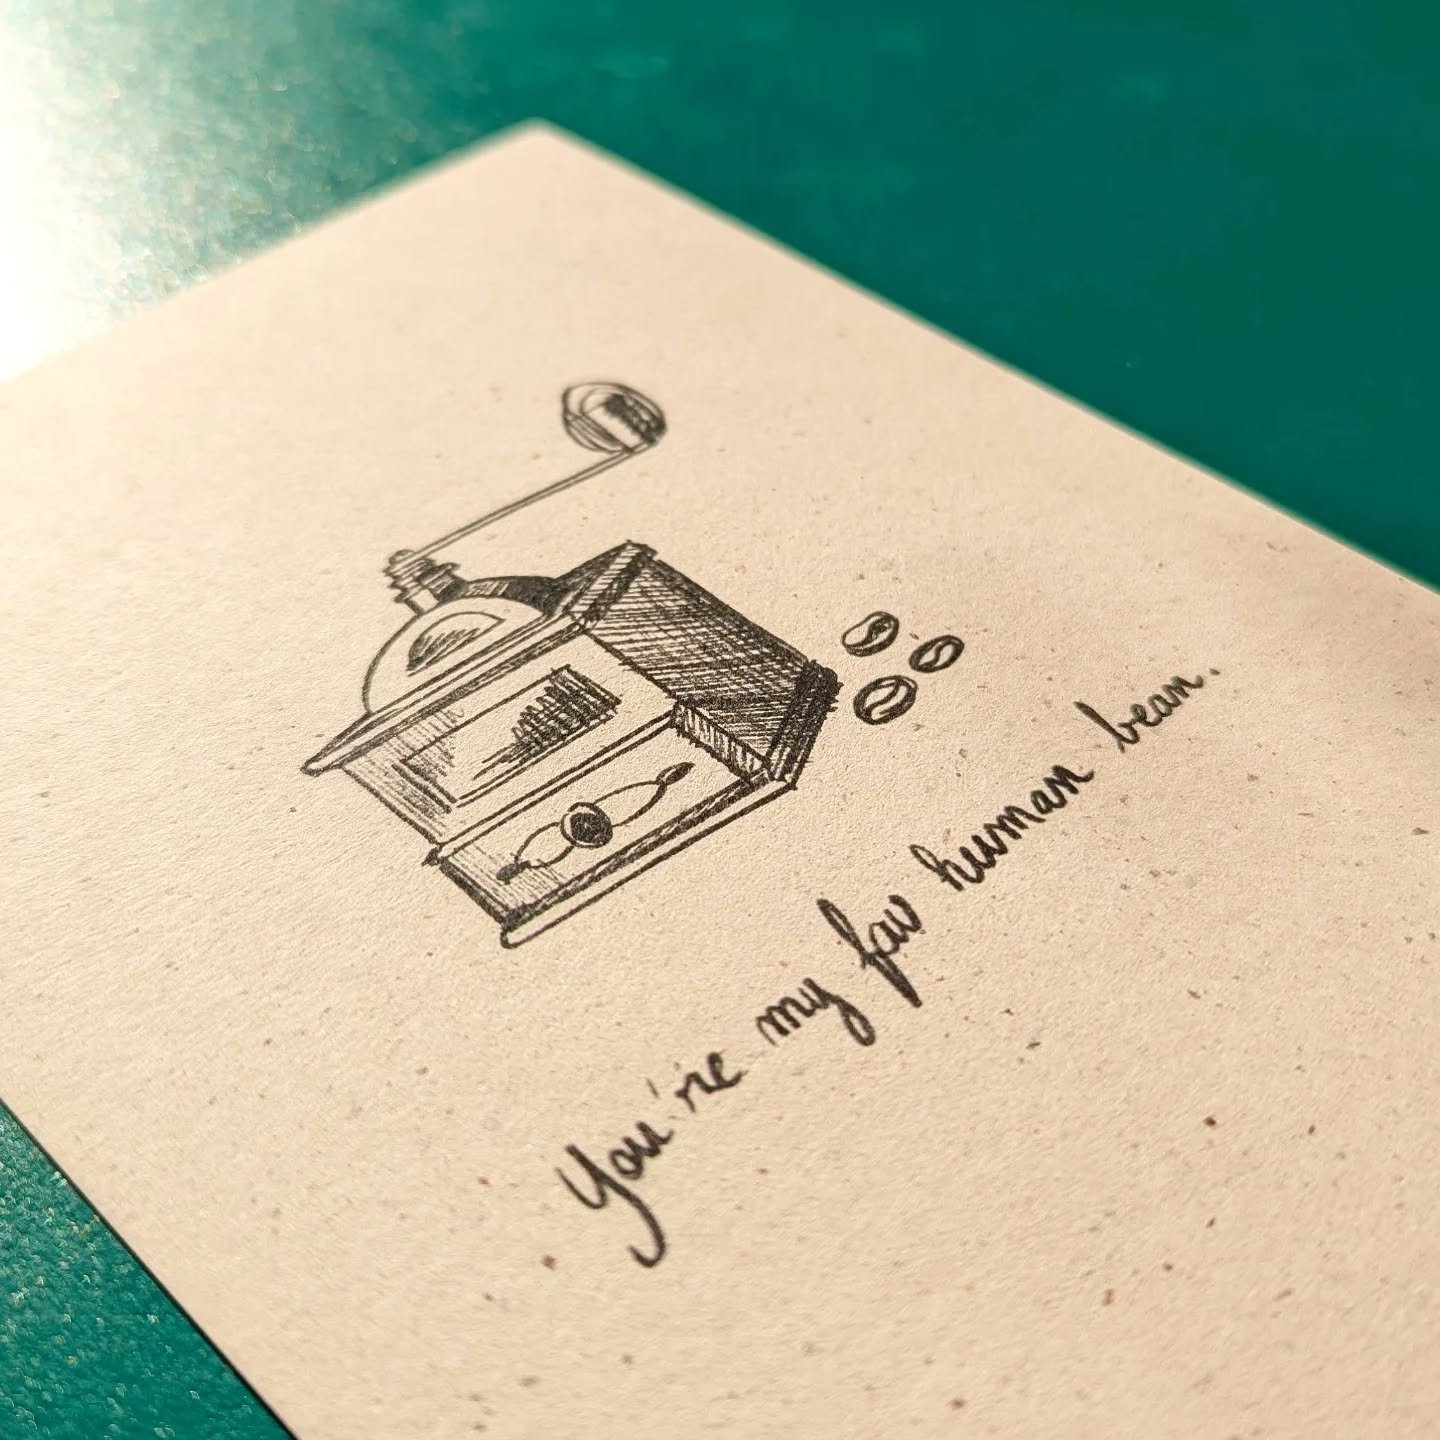 You're my fav human bean.